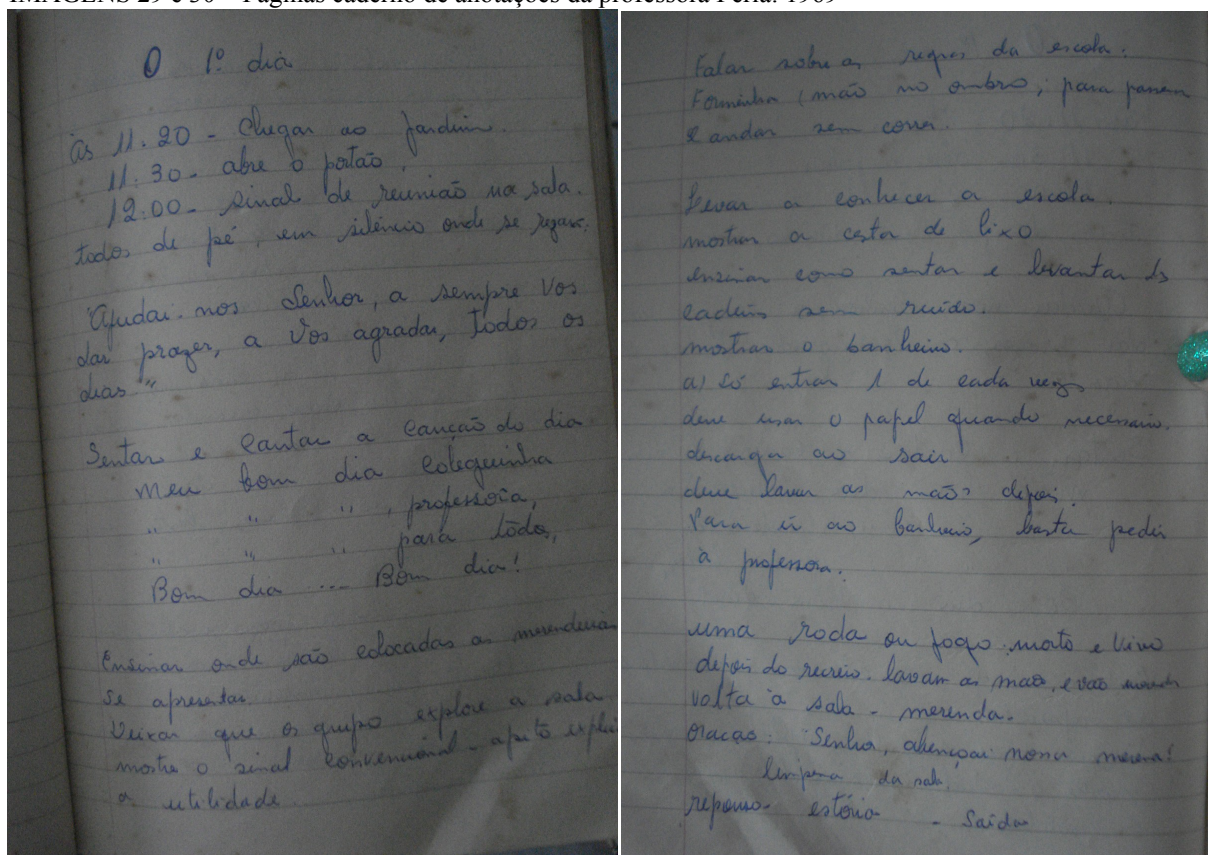 IMAGENS 29 e 30 – Páginas caderno de anotações da professora Perla. 1969
O 1º dia
Às 11.20 - Chegar ao Jardim.
11.30 - abre o portão.
12.00 - sinal de reunião na sala.
todos de pé, em silêncio onde se
"Ajudai-nos Senhor, a sempre Vos
dar prazer, a Vos agradar, todos os
dias"
Sentar e Cantar a Canção do dia
Meu bom dia Coleguinha
" " " , professora,
" " " para todos,
Bom dia ... Bom dia!
Ensinar onde são colocadas as merendeiras
se apresentar.
Deixar que os grupo explore a sala
mostre o sinal convencional - apito
a utilidade.
Falar sobre as regras da escola.
Forminha (mão no ombro, para
e andar sem correr.
Levar a conhecer a escola.
mostrar a cesta de lixo
ensinar como sentar e levantar ds
cadeiras sem ruído.
mostrar o banheiro.
a) Só entrar 1 de cada vez
deve usar o papel quando necessario.
descarga ao sair
deve lavar as mãos depois.
Para ir ao banheiro, basta pedir
à professora.
uma roda ou jogo: morto e Vivo
depois do recreio. lavam as mãos, e vão
volta à sala - merenda.
oracao: Senhor, abençoai nossa
limpesa da sala.
repouso - estória - Saída